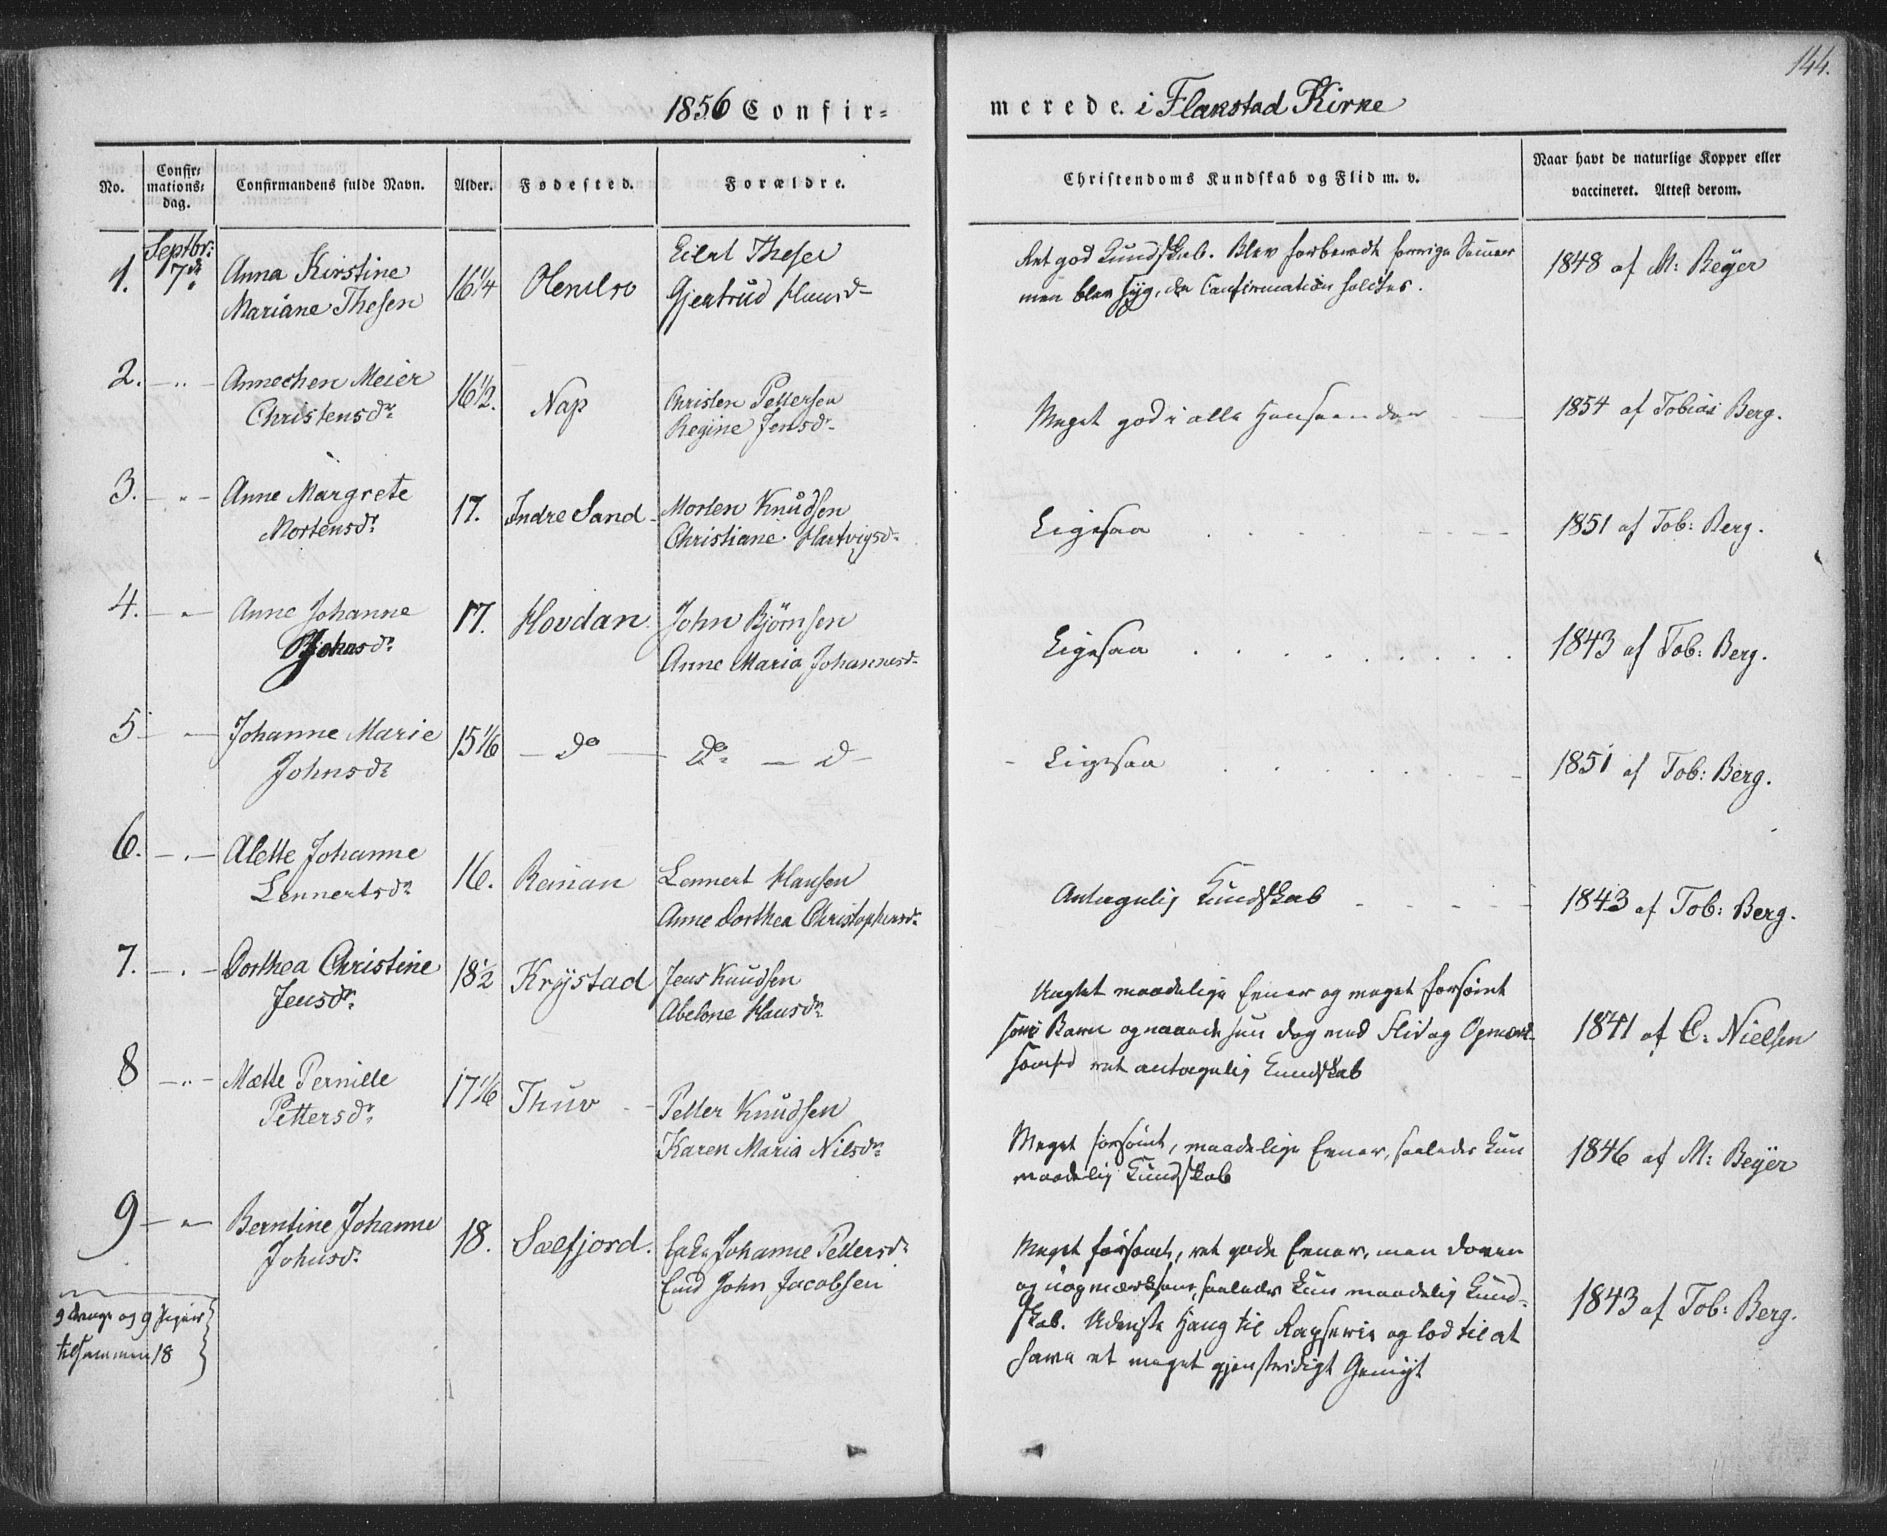 144.
1856 Confir=
merede. i Flakstad Kirke
No.
Confir=
mations=
dag.
Confirmandens fulde Navn.
Alder.
Fødested.
Forældre.
Christendoms Kundskab og Flid m. v.
Naar havt de naturlige Kopper eller
vaccineret. Attest derom.
1. Septbr: 7de Anna Kirstine
Mariane Thesen
16 1/4
Eilert Thesen
Gjertrud Hansd.
Ret god Kundskab. Blev forberedt forrige Sommer
men blev syg, da Confirmation holdtes.
1848 af M: Beyer
2. – " – Annechen Meier
Christensdr.
16 1/2.
Nap
Christen Pettersen
Regine Jensdr.
Meget god i alle Henseender
1854 af Tobias Berg.
3. – " – Anne Margrete
Mortensdr.
17.
Indre Sand
Morten Knudsen
Christiane Hartvigsdr.
Ligesaa
1851 af Tob: Berg.
4. – " – Anne Johanne
Johnsdr.
17.
Hovdan
John Bjørnsen
Anne Maria Johannesdr.
Ligesaa
1843 af Tob: Berg.
5 – " – Johanne Marie
Johnsdr.
15 1/6
– do –
Do – d –
Ligesaa
1851 af Tob: Berg.
6. – " – Alette Johanne
Lennertsdr.
16.
Lennert Hansen
Anne Dorthea Christophersdr.
Antagelig Kundskab
1843 af Tob: Berg.
7. – " – Dorthea Christine
Jensdr.
18 1/2
Krystad
Jens Knudsen
Abelone Hansdr.
maadelige Evner og meget forsømt
som Barn og naaede hun dog med Flid og Opmærk-
somhed ret antagelig Kundskab
1841 af C. Nielsen
8 – " – Mætte Pernille
Pettersdr.
17 1/6
Thuv
Petter Knudsen
Karen Maria Nilsdr.
Meget forsømt, maadelige Evner, saaledes kun
maadelig Kundskab
1846 af M: Beyer
9 – " – Berntine Johanne
Johnsdr.
18.
Sælfjord.
Johanne Pettersdr.
John Jacobsen
Meget forsømt, ret gode Evner, men doven
og uopmærksom, saaledes kun maadelig Kund-
skab. Udviste Hang til og lod til at
have et meget gjenstridigt Gemyt
1843 af Tob: Berg.
9 Drenge og 9 Piger
tilsammen 18